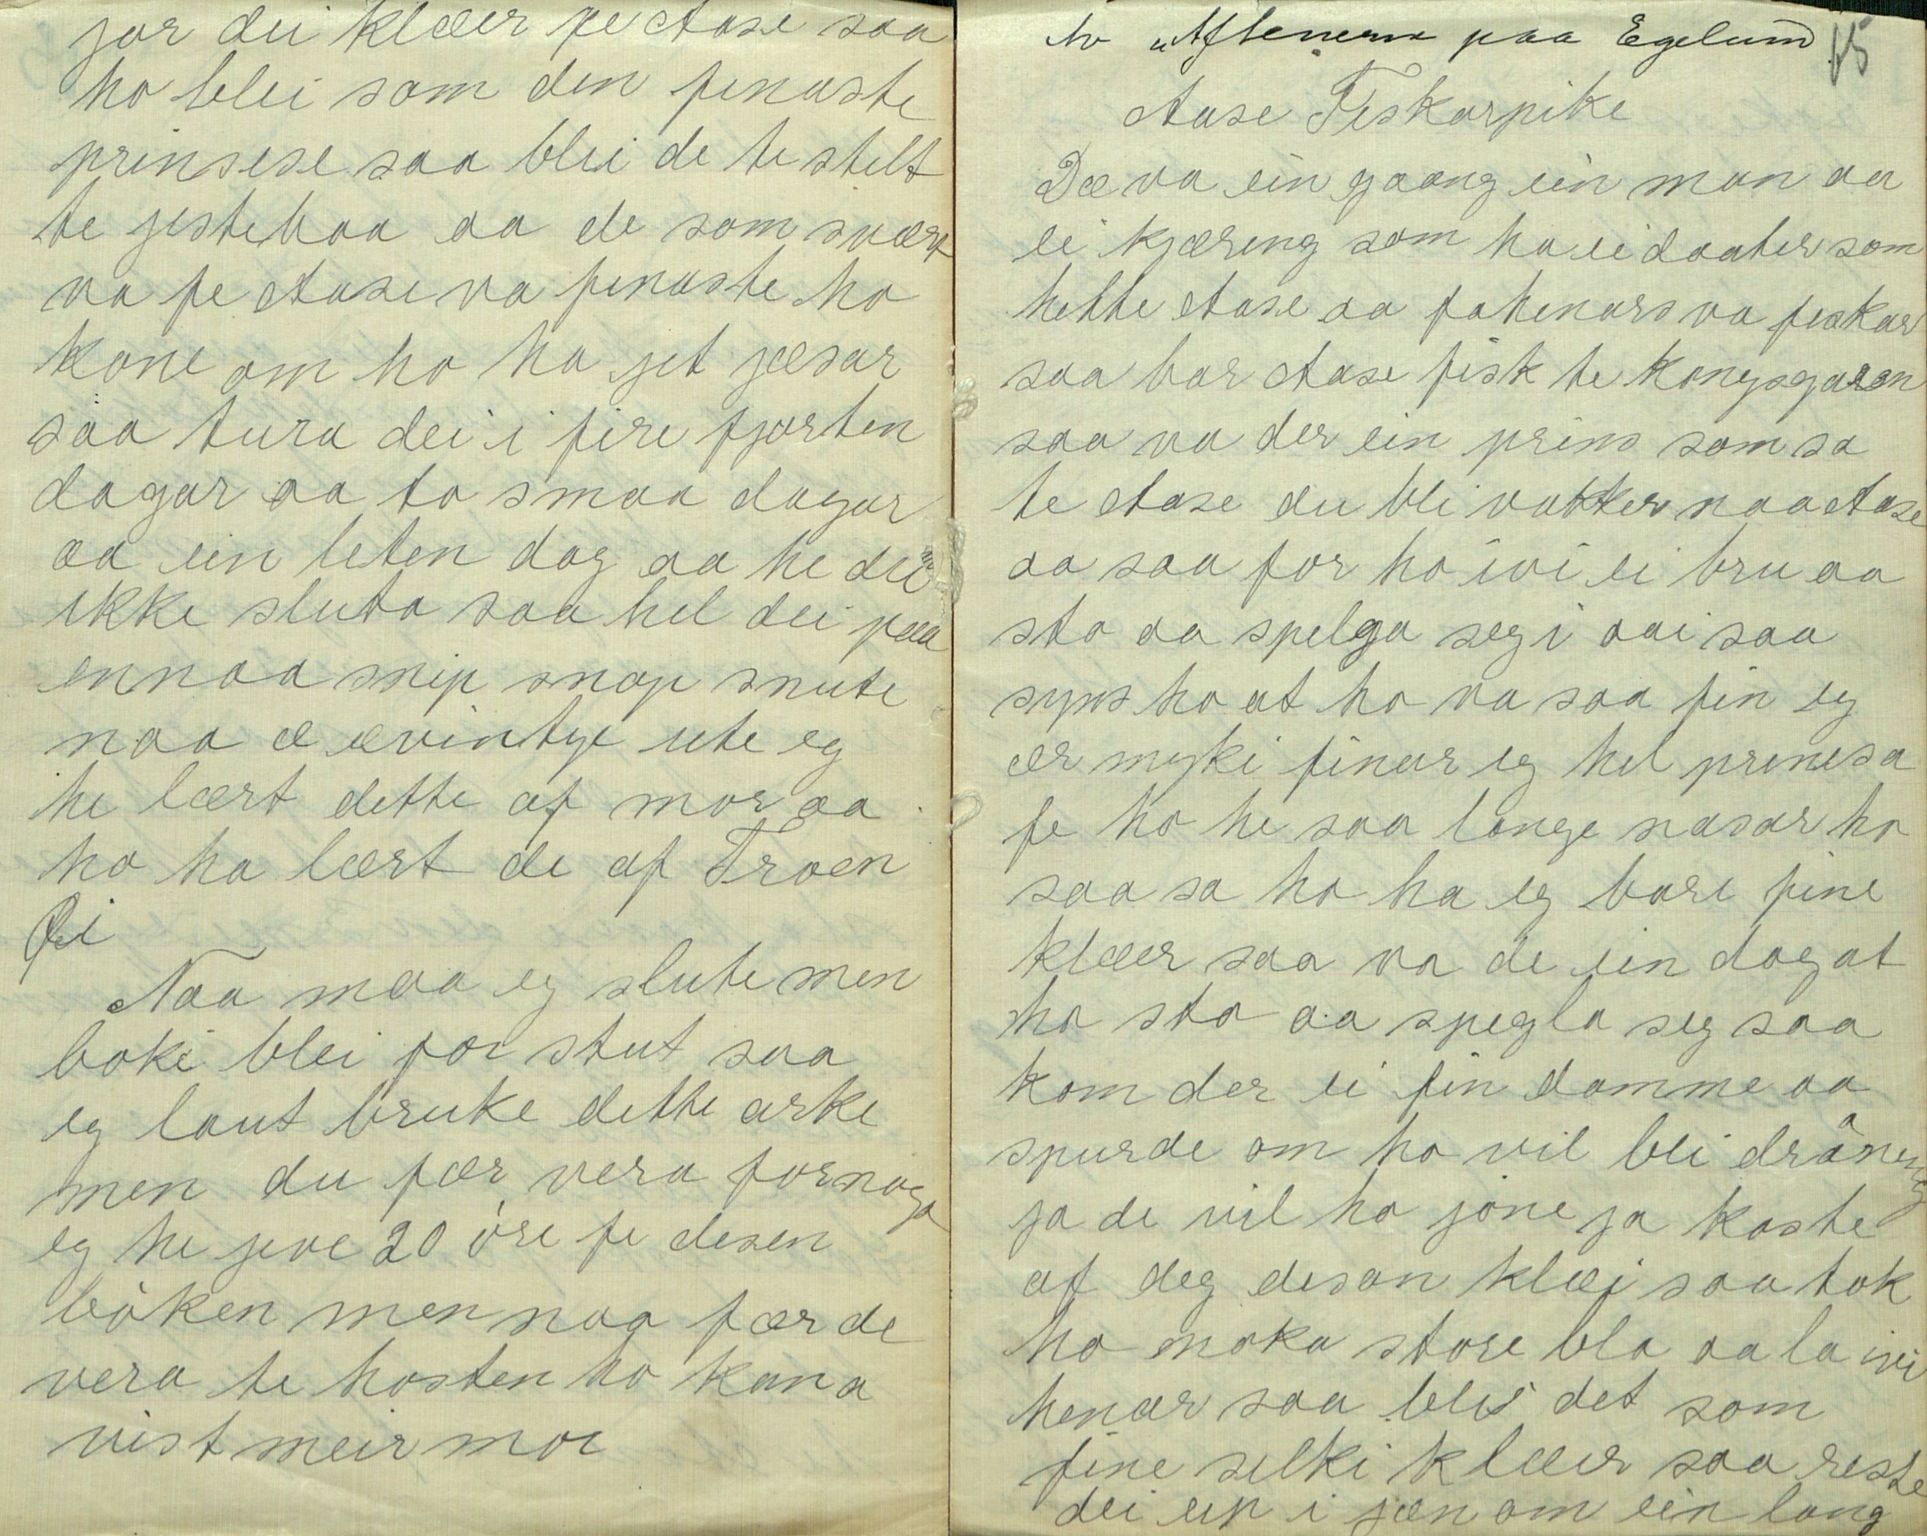 jor dei klæer fe Aase saa
ho blei som den finaste
prinsese saa blei de te stelt
te jestebaa aa de som svært
va fe Aase va finaste ho
kone om ho ha jet jæsar
saa tura dei i fire fjorten
dagar aa to smaa dagar
aa ein liten dag aa he dei
ikke sluta saa hel dei paa
ennaa snip snap snute
naa æ ævintye ute eg
he lært dette af mor aa
ho ha lært de af Troen
Øi
Naa maa eg slute men
boki blei for stut saa
eg laut bruke dette arke
men du fær vera fornøga
eg he jeve 20 øre fe desen
bøken men naa fær de
vera te hosten ho kan a
vist meir mor
to "Aftenerne paa Egelund
65
Aase Fiskarpike
Dæ va ein gaang ein man aa
ei kjæring som ha ei daater som
hette Aase aa fahenars va fiskar
saa bar Aase fisk te kongsgaren
saa va der ein prins som sa
te Aase du bli vakker naa Aase
aa saa for ho ivi ei bru aa
sto aa spelga seg i aai saa
syns ho at ho va saa fin eg
ær myki finar eg hel prinesa
fe ho he saa lange nasar ho
saa sa ho ha eg bare fine
klæer saa va de ein dag at
ho sto aa spegla seg saa
kom der ei fin damme aa
spurde om ho vil bli dråning
ja de vil ho jøne ja kaste
af deg desan klæi saa tok
ho noka store bla aa la ivi
henar saa blei det som
fine silki klæer saa reste
dei up i jæn om ein lang